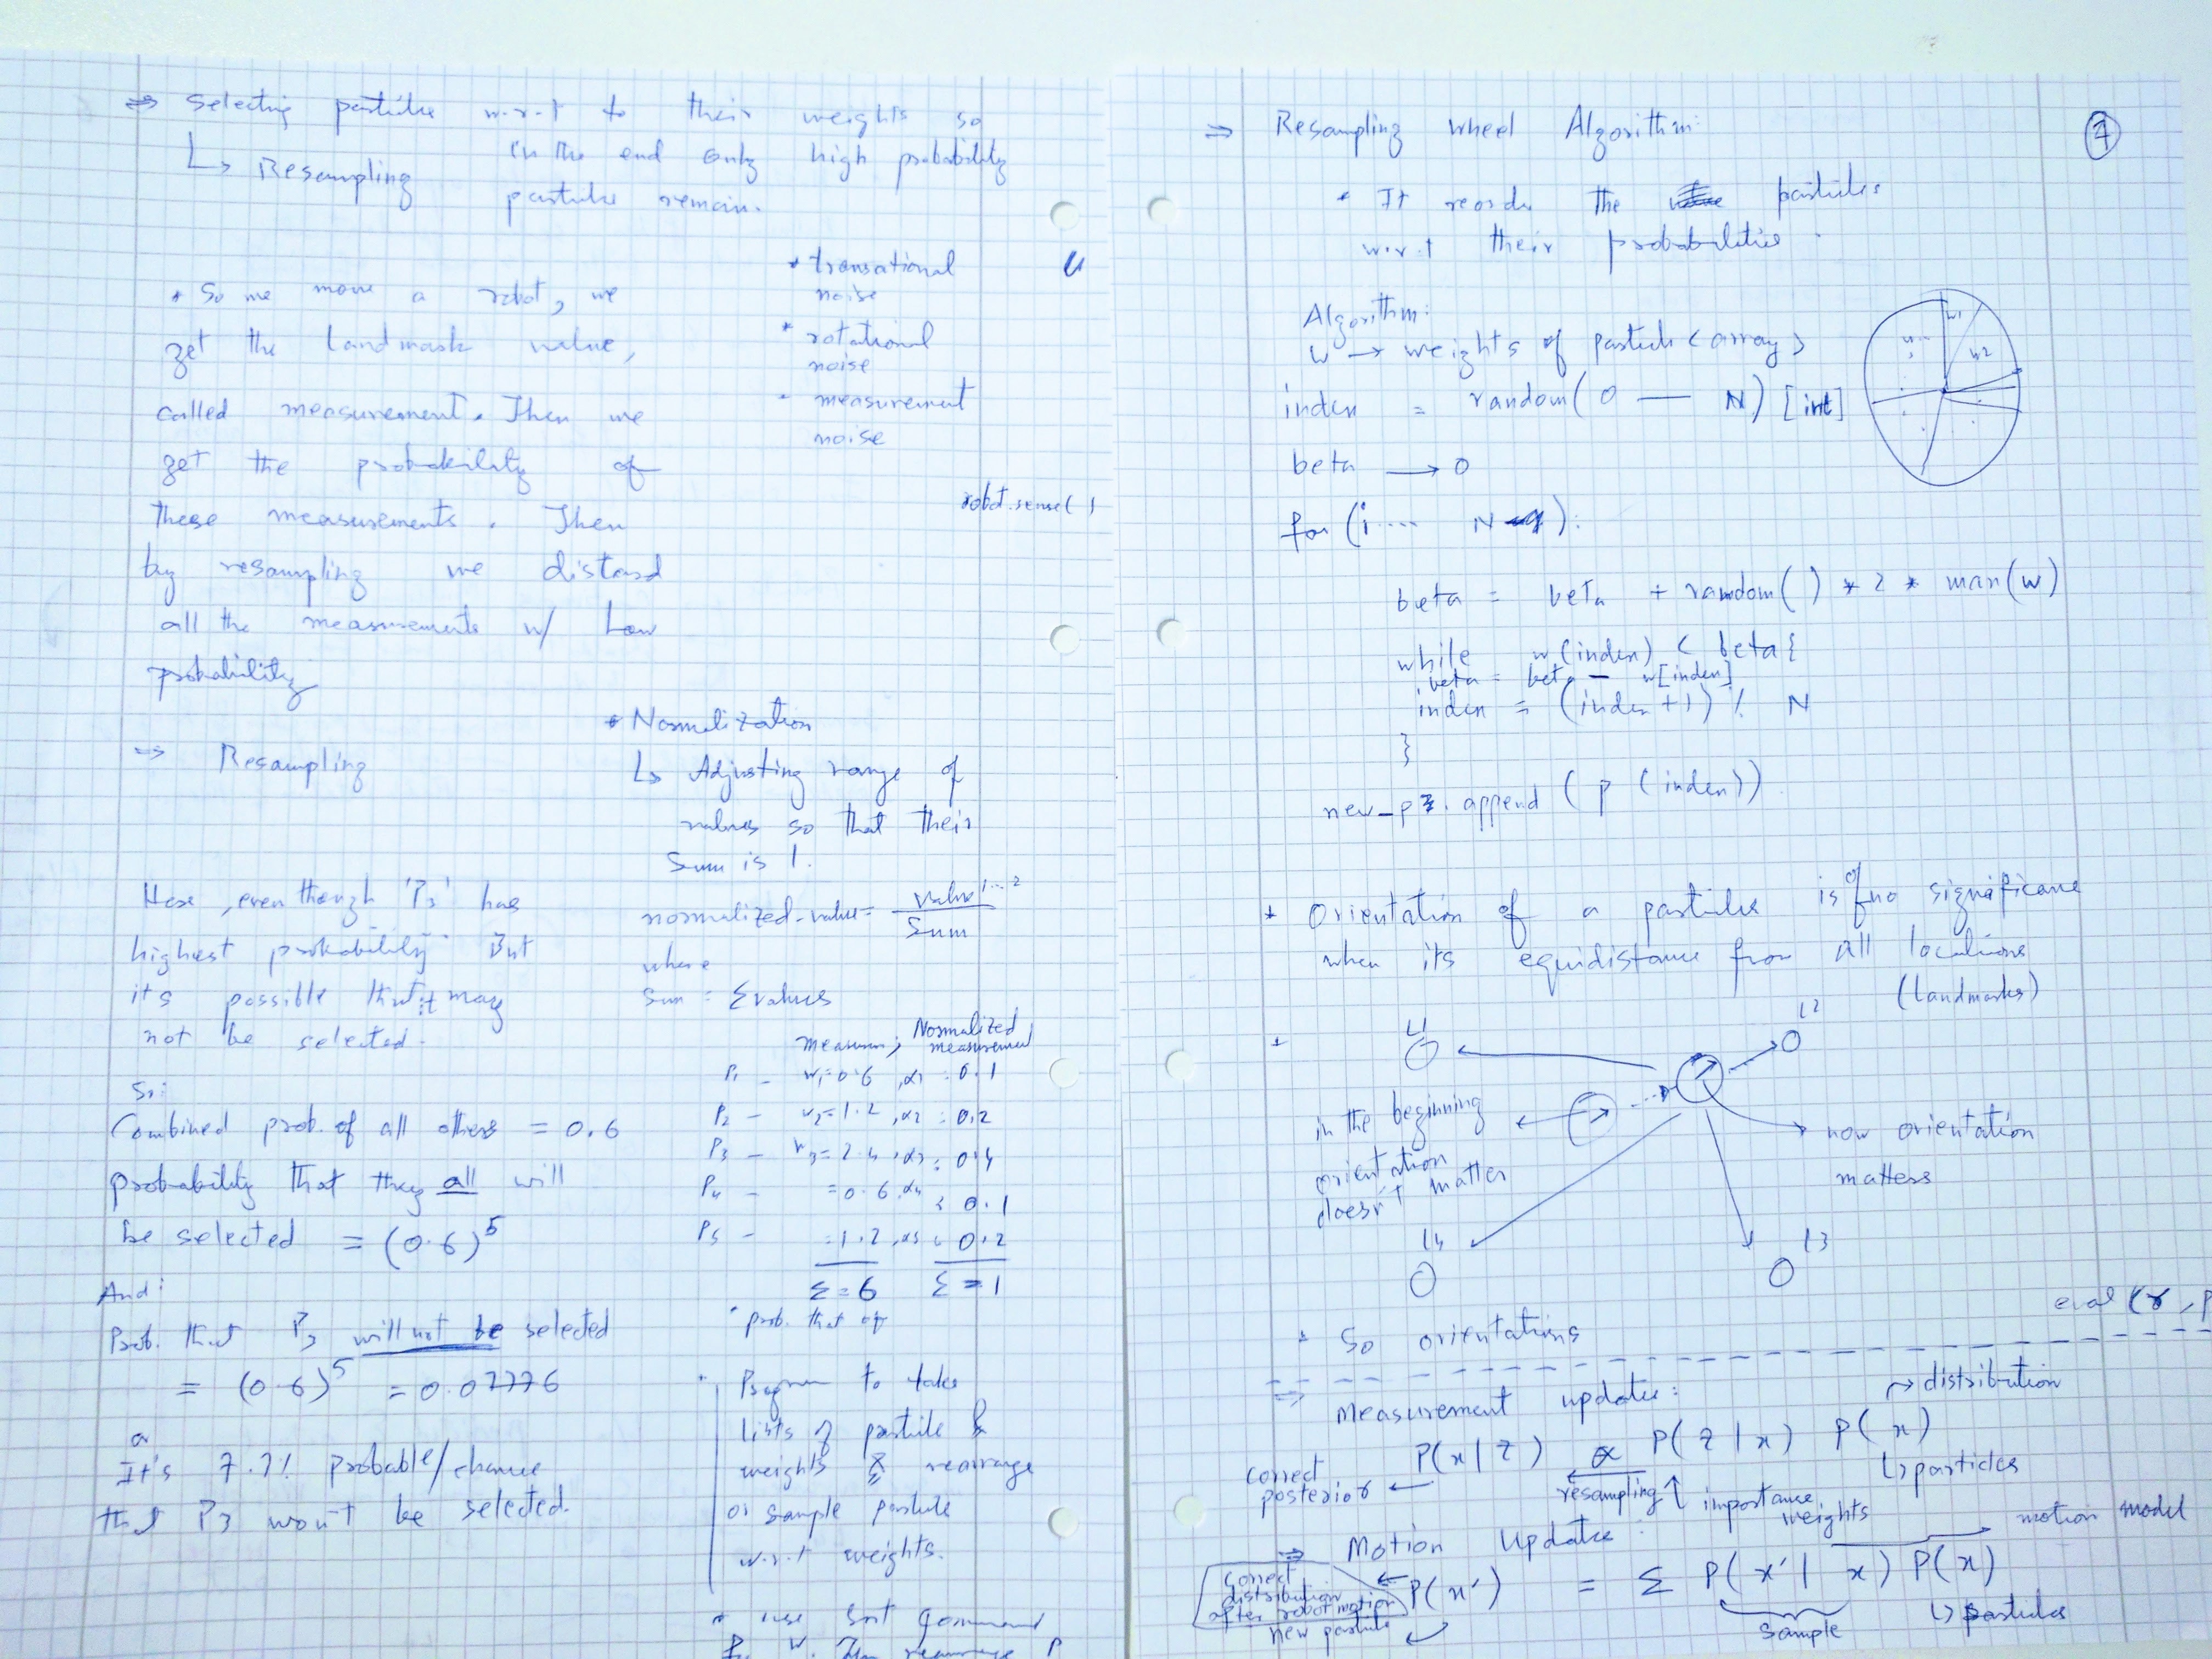 ⇒ Selecting particles w.r.t to their weights so
in the end only high probability
↳ Resampling
particles remain.
* translational
noise
* rotational
noise
* measurement
noise
* So we move a robot, we
get the landmark value,
called measurement. Then we
get the probability of
These measurements. Then
by resampling we distard
all the measurements w/ Low
probability
robot.sense( )
⇒ Resampling
* Normalization
↳ Adjusting range of
values so that their
Sum is 1.
normalized-value = value 1...2 / Sum
where
Sum = Σvalues
Here, even though 'P3' has
highest probability. But
it's possible that it may
not be selected.
So:
Combined prob. of all others = 0.6
probability that they all will
be selected = (0.6)^5
And:
Prob. that P3 will not be selected
= (0.6)^5 = 0.07776
or
It's 7.7% probable/chance
that P3 won't be selected.
Normalized
measurement
P1 - w1=0.6, α1 : 0.1
P2 - w2=1.2, α2 : 0.2
P3 - w3=2.4, α3 : 0.4
P4 - =0.6, α4 : 0.1
P5 - =1.2, α5 : 0.2
Σ=6 Σ=1
* prob. that of
* Program to take
lists of particle &
weights & rearrange
or sample particle
w.r.t weights.
* use sort command
7
⇒ Resampling wheel Algorithm:
* It reorde the particles
w.r.t their probabilities.
Algorithm:
w → weights of particle (array)
index = random(0 — N) [int]
beta → 0
for (i.... N):
beta = beta + random() * 2 * max(w)
while w(index) < beta{
beta = beta - w[index]
index = (index+1) % N
}
new_p3.append (p (index))
w1
w2
* Orientation of a particle is of no significane
when its equidistance from all locations
(landmarks)
*
L1
L2
in the beginning
orientation
doesn't matter
now orientation
matters
L4
L3
* So orientations
eval (r, p
⇒ Measurement updates:
→ distribution
P(x|z) α P(z|x) P(x)
↳ particles
correct
posterior ←
resampling ↑ importance
weights
⇒ Motion Updates:
motion model
P(x') = Σ P(x'|x) P(x)
↳ particles
sample
correct
distribution
after robot motion
new particle